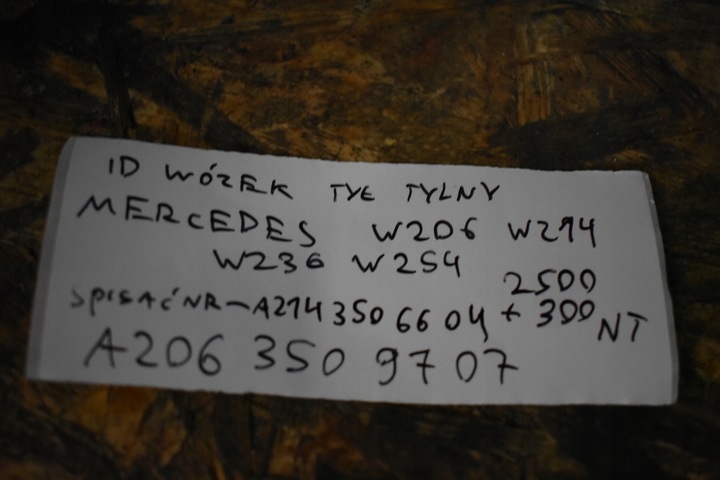 ID WÓZEK TYŁ TYLNY
MERCEDES W206 W214
W236 W254 2500
SPISAĆ NR-A214 350 66 04 + 300 NT
A206 350 97 07